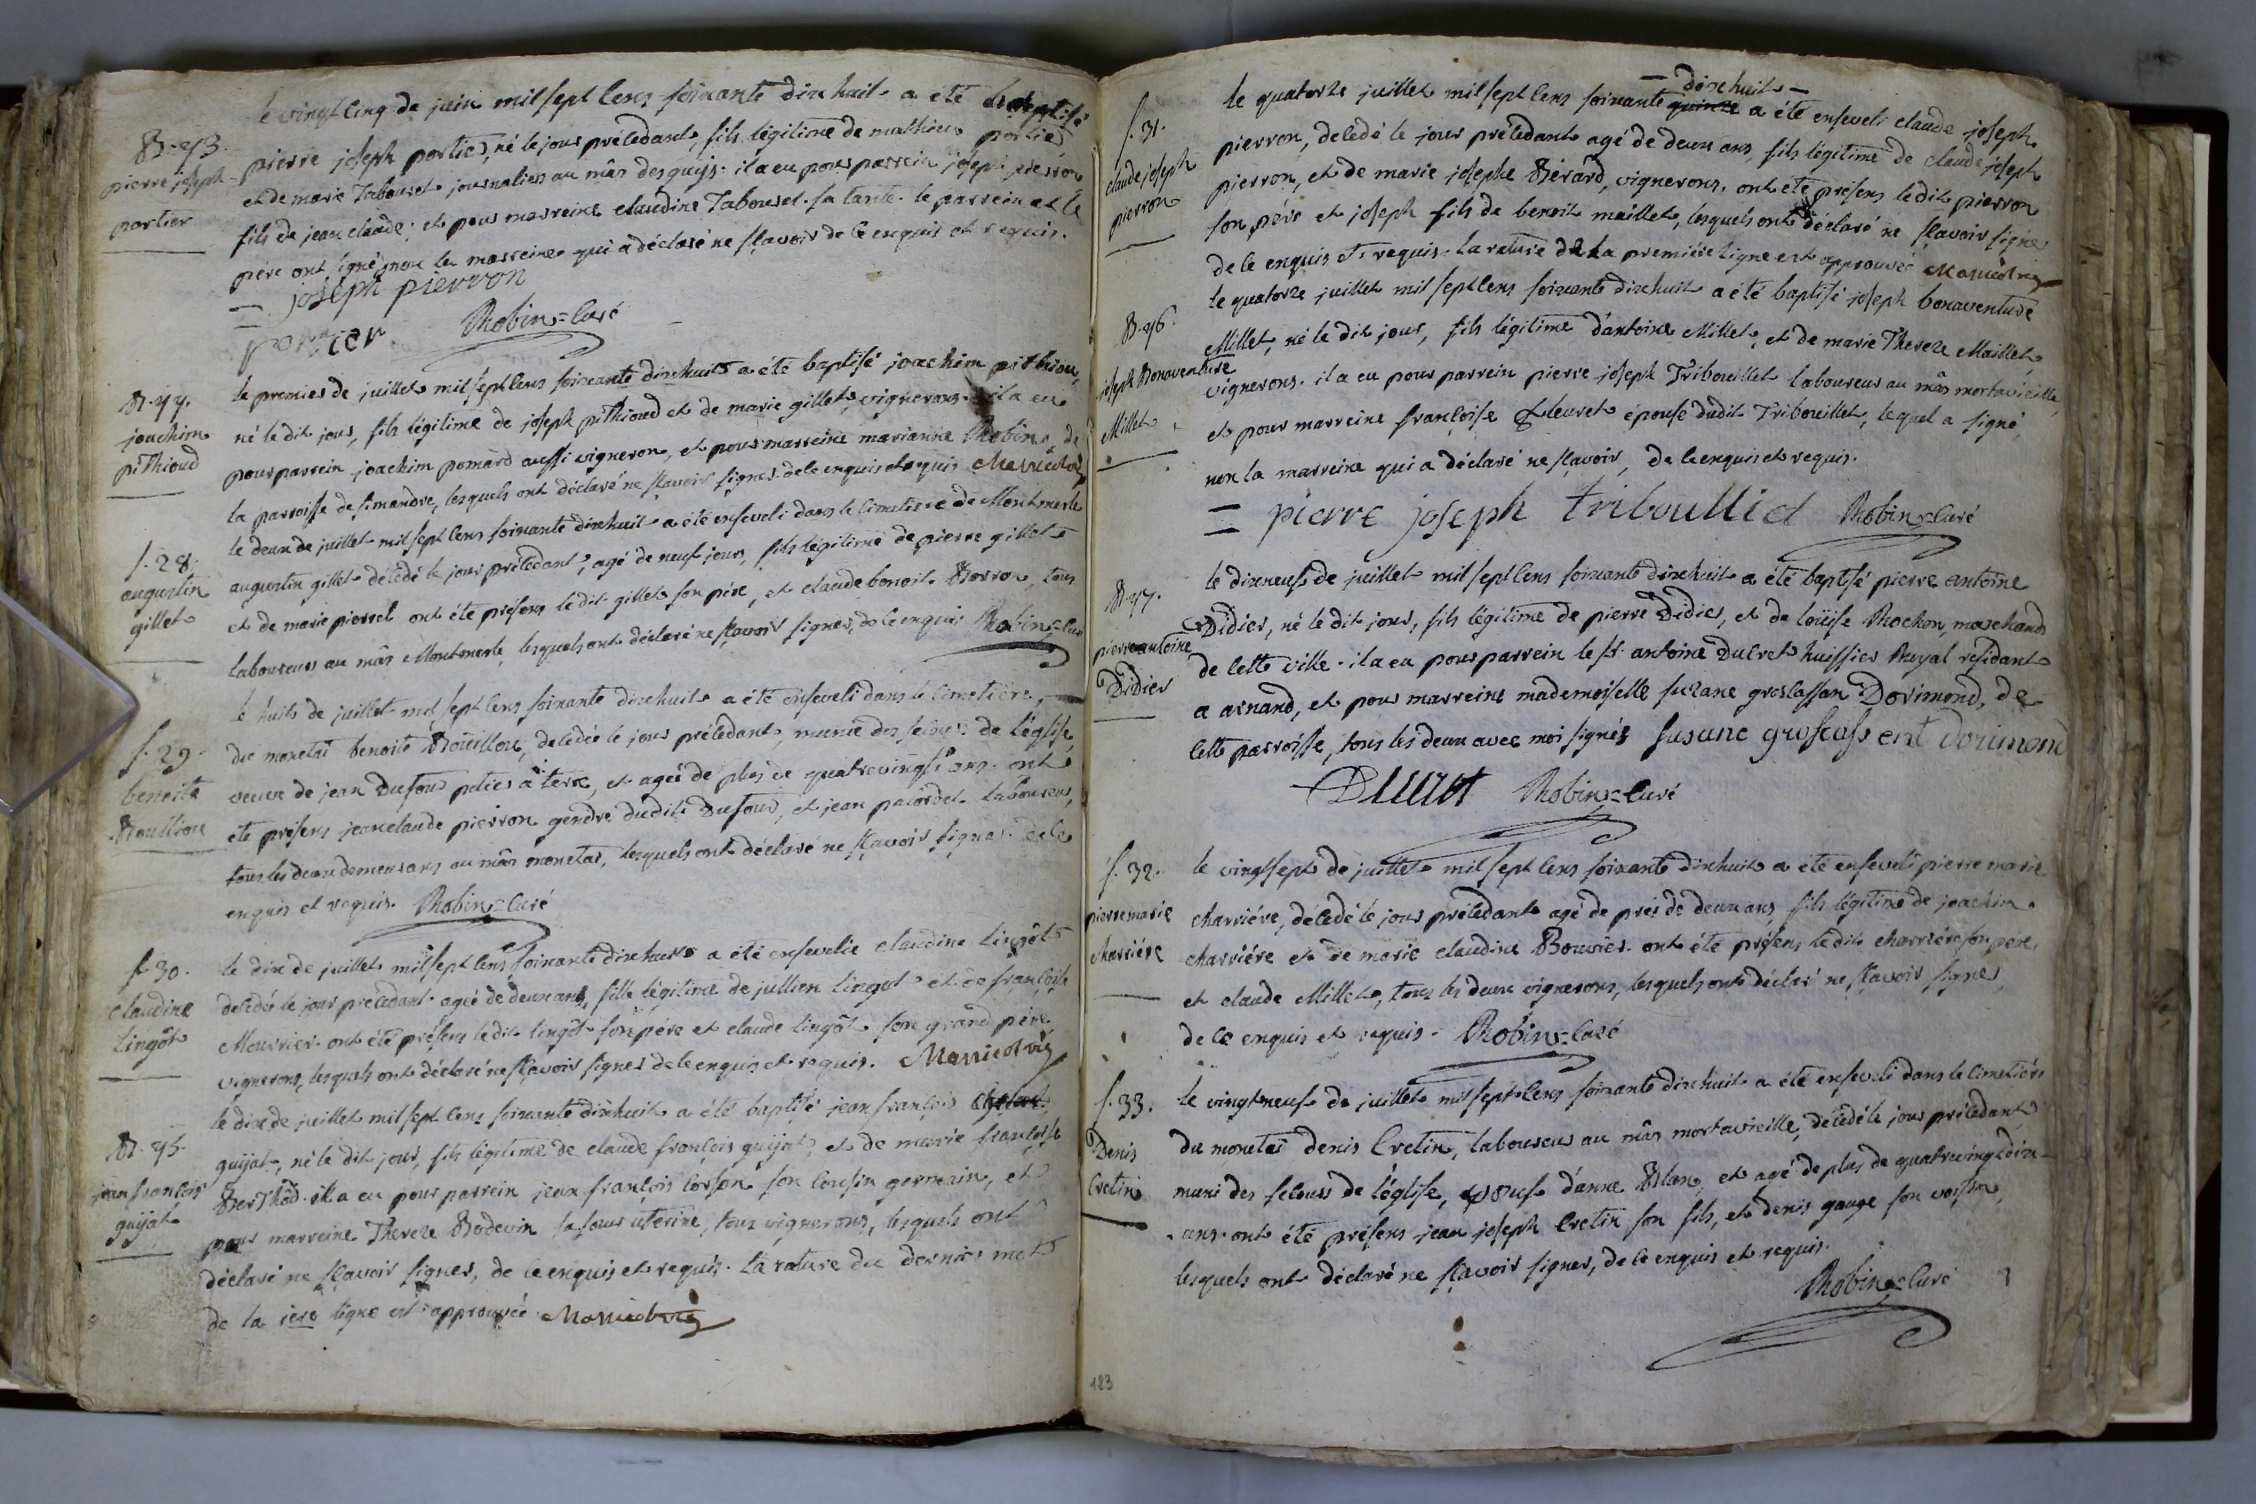 B. 73.
pierre joseph
portier
le vingt cinq de juin mil sept cens soixante dix huit a été baptisé
pierre joseph portier, né le jour précedant, fils légitime de mathieu portier
et de marie Tabouret journaliers au mâs des guijs. il a eu pour parrein joseph pierron
fils de jean claude; et pour marreine claudine Tabouret sa tante. le parrein et le
pére ont signé, non la marreine qui a déclaré ne sçavoir de ce enquis et requis.
= joseph pierron
portier Robin = Curé
B. 74.
joachim
pithioud
le premier de juillet mil sept cens soixante dixhuit a été baptisé joachim pithioud,
né le dit jour, fils légitime de joseph pithioud et de marie gillet, vignerons. il a eu
pour parrein joachim pomard aussi vigneron, et pour marreine marianne Robin, de
la parroisse de simandre, lesquels ont déclaré ne sçavoir signer de ce enquis et requis
s. 28.
augustin
gillet
le deux de juillet mil sept cens soixante dixhuit a été enseveli dans le cimetierre de Montmerle
augustin gillet décédé le jour précedant, agé de neuf jours, fils légitime de pierre gillet
et de marie pierrel ont été présens ledit gillet son pére, et claude benoit Borron, tous
laboureurs au mâs Montmerle, lesquels ont déclaré ne sçavoir signer, de ce enquis Robin = Curé
s. 29.
benoite
Rouillon
le huit de juillet mil sept cens soixante dixhuit a été enseveli dans le cimetiére
du monetai benoite Roüillon, décédée le jour précedant, munie des secours de l'église,
veuve de jean Dufour potier à terre, et agée de plus de quatre vingts ans. ont
été présens jean claude pierron gendre dudit Dufour, et jean pacordet laboureur,
tous les deux demeurans au mâs monetai, lesquels ont déclaré ne sçavoir signer de ce
enquis et requis. Robin = Curé
s. 30.
Claudine
Lingôt
le dix de juillet mil sept cens soixante dixhuit a été ensevelie claudine Lingôt
décédée le jour précedant agée de deux ans, fille légitime de jullien Lingot et de françoise
Mourrier. ont été présens ledit Lingôt son pére et claude Lingôt son grand pére
vignerons, lesquels ont déclaré ne sçavoir signer de ce enquis et requis.
B. 75.
jean françois
guijat
le dix de juillet mil sept cens soixante dixhuit a été baptisé jean françois
guijat, né le dit jour, fils légitime de claude françois guijat, et de marie françoise
Berthod. il a eu pour parrein jean françois Corson son cousin germain, et
pour marreine Therese Bodevin sa sœur uterine, tous vignerons, lesquels ont
déclaré ne sçavoir signer, de ce enquis et requis. la rature du dernier mot
de la 1ere ligne est approuvée
s. 31.
claude joseph
pierron
dixhuit
le quatorze juillet mil sept cens soixante quinze a été enseveli claude joseph
pierron, décédé le jour précedant agé de deux ans, fils légitime de claude joseph
pierron, et de marie josephe Bérard, vignerons. ont été présens ledit pierron
son pére et joseph fils de benoit maillet, lesquels ont déclaré ne sçavoir signer
de ce enquis et requis. la rature de la premiére ligne est approuvée
B. 76.
joseph Bonaventure
Millet
le quatorze juillet mil sept cens soixante dixhuit a été baptisé joseph bonaventure
Millet, né le dit jour, fils légitime d'antoine Millet, et de marie Therese Maillet,
vignerons. il a eu pour parrein pierre joseph Tribouillet laboureur au mâs mortavieille,
et pour marreine françoise fleuret épouse dudit Tribouillet, lequel a signé,
non la marreine qui a déclaré ne sçavoir, de ce enquis et requis.
= pierre joseph triboulliet Robin = Curé
B. 77.
pierre antoine
Didier
le dixneuf de juillet mil sept cens soixante dixhuit a été baptisé pierre antoine
Didier, né le dit jour, fils légitime de pierre Didier, et de loüise Rochon, marchands
de cette ville. il a eu pour parrein le sr. antoine Ducret huissier Royal résidant
a arnand, et pour marreine mademoiselle suzane groscassan Dorimond, de
cette parroisse, tous les deux avec moi signés susane groscassent dorimond
Ducret Robin = Curé
s. 32.
pierre marie
charriére
le vingtsept de juillet mil sept cens soixante dixhuit a été enseveli pierre marie
charriére, décédé le jour précedant agé de près de deux ans, fils légitime de joachim
charriére et de marie claudine Bouvier. ont été présens ledit charriére son pere,
et claude Millet, tous les deux vignerons, lesquels ont déclaré ne sçavoir signer,
de ce enquis et requis. Robin = Curé
s. 33.
Denis
Cretin
le vingtneuf de juillet mil sept cens soixante dixhuit a été enseveli dans le cimetiére
du monetai denis Cretin, laboureur au mâs mortavieille, décédé le jour précedant,
muni des secours de l'église, veuf d'anne Blan, et agé de plus de quatrevingtdix
ans. ont été présens jean joseph Cretin son fils, et denis gauge son voisin,
lesquels ont déclaré ne sçavoir signer, de ce enquis et requis.
Robin = Curé
183